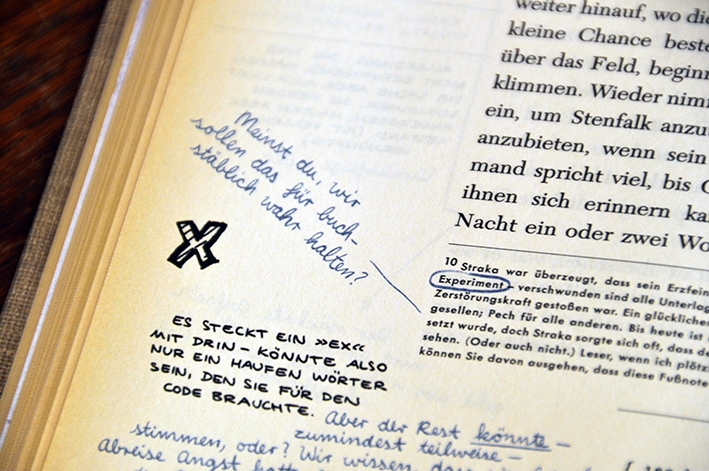 weiter hinauf, wo die
kleine Chance beste
über das Feld, beginn
klimmen. Wieder nim
ein, um Stenfalk anzu
anzubieten, wenn sein
mand spricht viel, bis
ihnen sich erinnern ka
Nacht ein oder zwei Wo
10 Straka war überzeugt, dass sein Erzfein
Experiment – verschwunden sind alle Unterlag
Zerstörungskraft gestoßen war. Ein glücklicher
gesellen; Pech für alle anderen. Bis heute ist
setzt wurde, doch Straka sorgte sich oft, dass de
sehen. (Oder auch nicht.) Leser, wenn ich plötzl
können Sie davon ausgehen, dass diese Fußnote
Meinst du, wir
sollen das für buch-
stäblich wahr halten?
X
ES STECKT EIN »EX«
MIT DRIN – KÖNNTE ALSO
NUR EIN HAUFEN WÖRTER
SEIN, DEN SIE FÜR DEN
CODE BRAUCHTE.
Aber der Rest könnte –
zumindest teilweise –
stimmen, oder? Wir wissen,
Abreise Angst